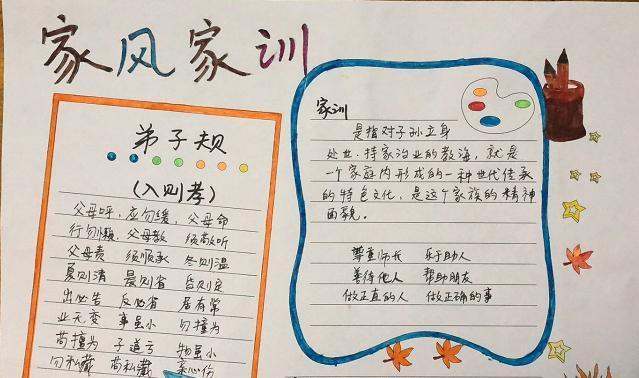 家风家训
弟子规
(入则孝)
父母呼,应勿缓,父母命
行勿懒.父母教 须敬听
父母责 须顺承 冬则温
夏则清 晨则省 昏则定
出必告 反必省 居有常
业无变 事虽小 勿擅为
苟擅为 子道亏 物虽小
勿私藏 苟私藏 亲心伤
家训
是指对子孙立身
处世.持家治业的教诲,就是
一个家庭内形成的一种世代传承
的特色文化,是这个家族的精神
面貌。
尊重师长 乐于助人
善待他人 帮助朋友
做正直的人 做正确的事